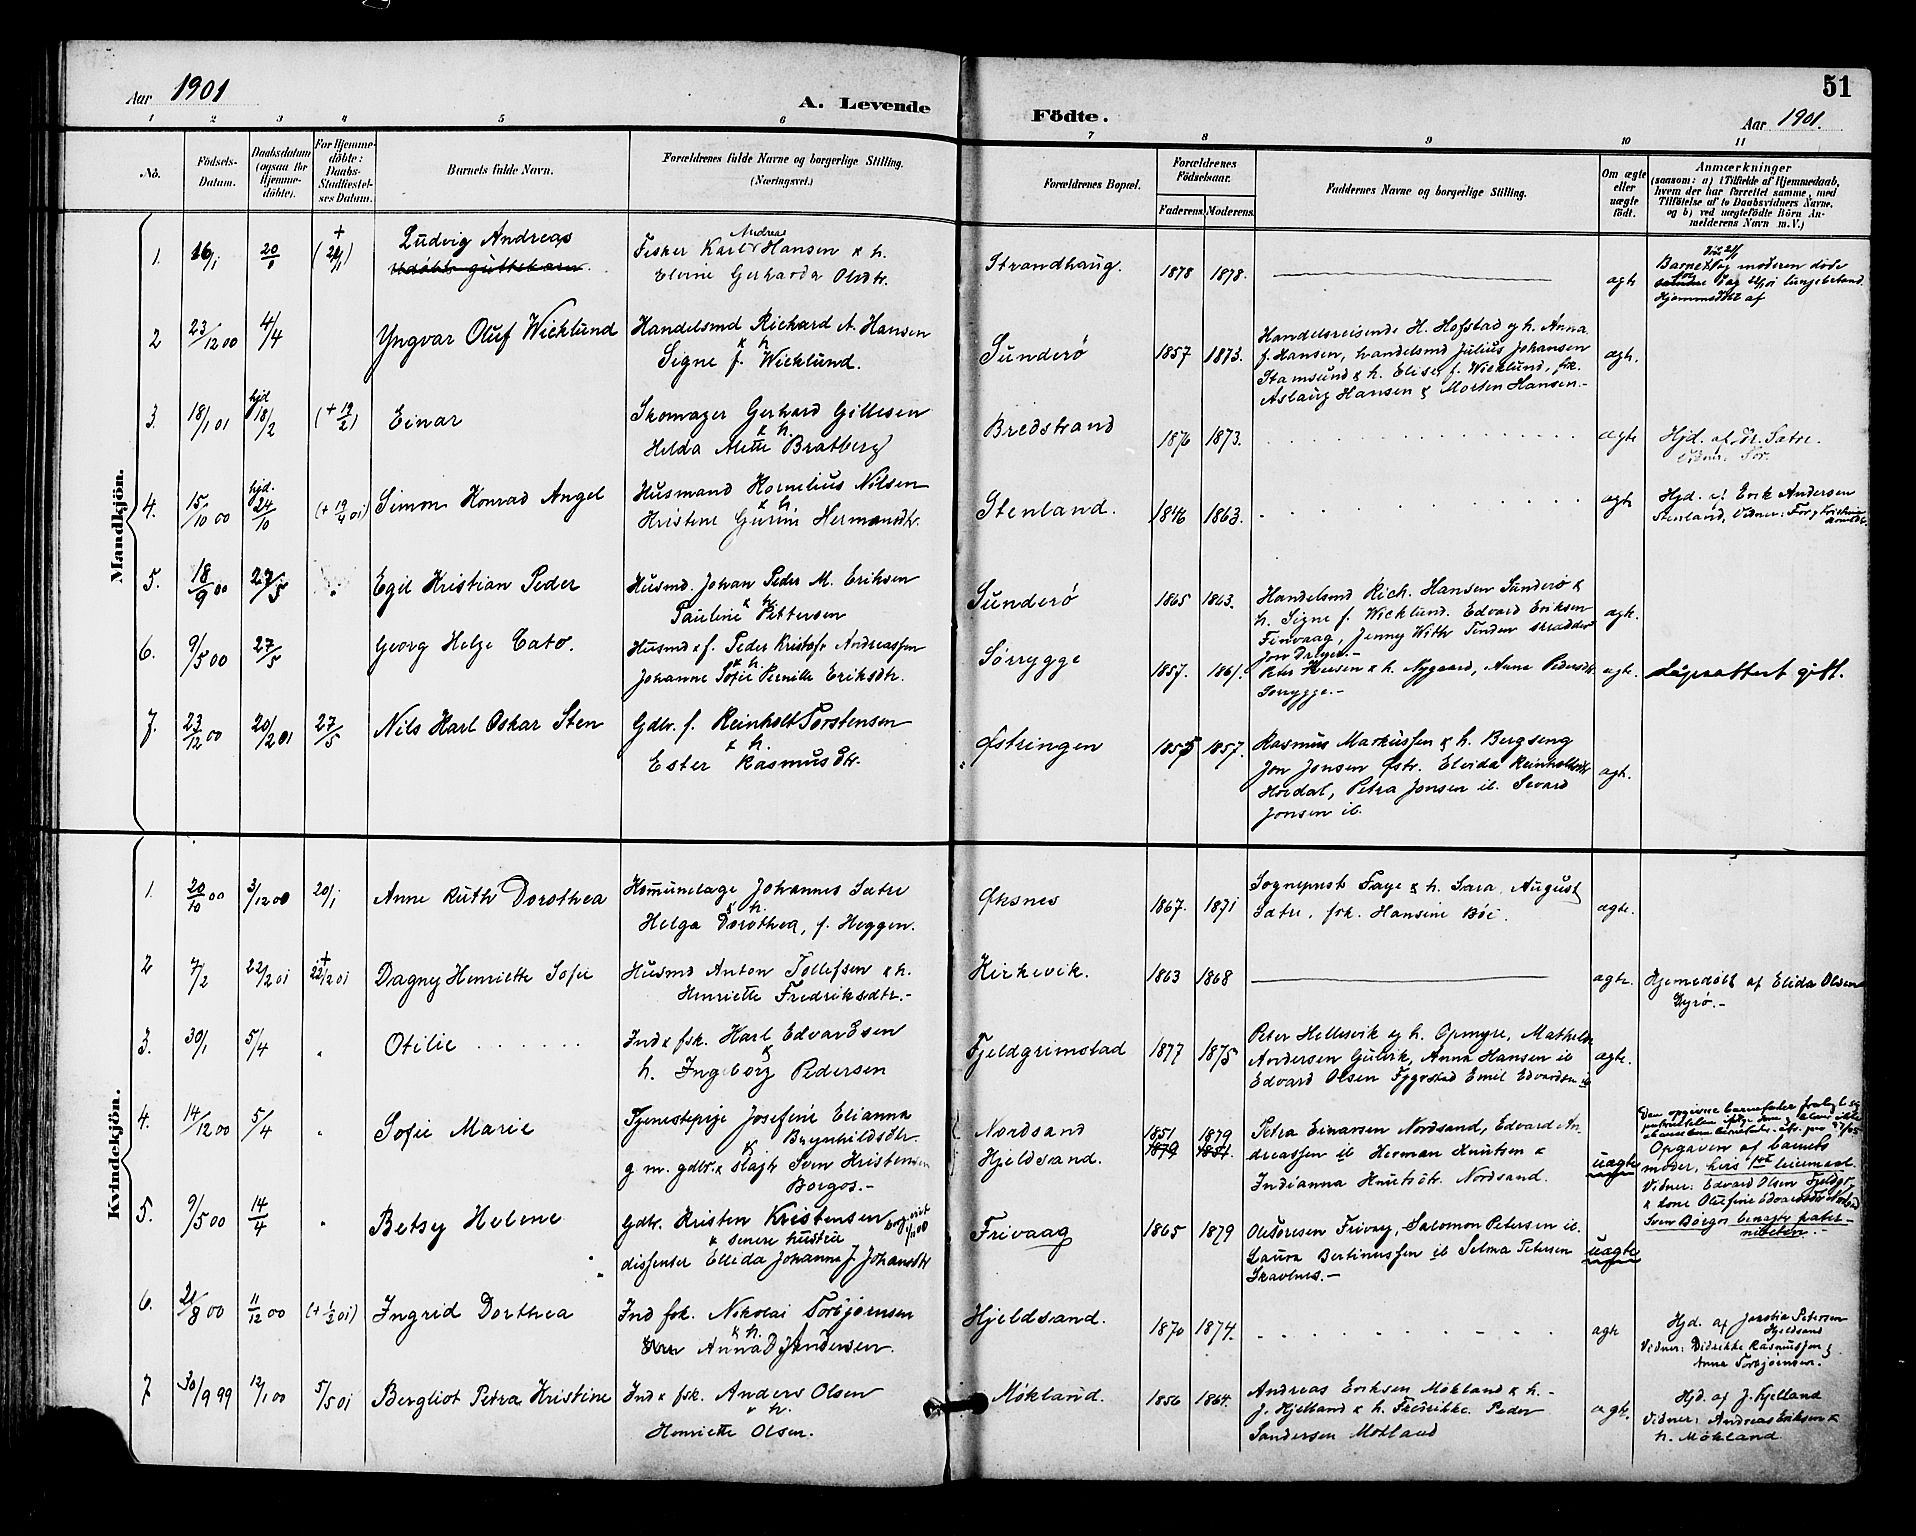 Aar 1901
A. Levende Födte.
51
Aar 1901.
1 2 3 4 5 6 7 8 9 10 11
No.
Födsels-Datum.
Daabsdatum (ogsaa for Hjemmedöbte).
For Hjemmedöbte: Daabs-Stadfæstelses Datum.
Barnets fulde Navn.
Forældrenes fulde Navne og borgerlige Stilling.
(Næringsvei.)
Forældrenes Bopæl.
Forældrenes Födselsaar.
Faderens. Moderens.
Faddernes Navne og borgerlige Stilling.
Om ægte eller uægte födt.
Anmærkninger
(saasom: a) i Tilfælde af Hjemmedaab, hvem der har forrettet samme, med Tilföielse af to Daabsvidners Navne, og b) ved uægtefödte Börn Anmelderens Navn m. V.)
Mandkjön.
1. 16/1 20/1 Ludvig Andreas
Fisker Karl Andreas Hansen & h.
Elvine Gerharda Olsdtr.
Strandhaug. 1878 1878. ægte
2 23/12 00 4/4 Yngvar Oluf Wicklund
Handelsmd Richard A. Hansen
& h
Signe f. Wicklund.
Sunderö 1857 1873.
Handelsreisende H. Hofstad og h. Anna
f. Hansen, handelsmd Julius Johansen
Stamsund & h. Elise f. Wicklund, frk.
Aslaug Hansen & Morten Hansen.-
ægte.
3. 18/1 01 hjd 18/2 (+ 19/2) Einar
Skomager Gerhard Gillesen
& h.
Helda Alette Bratberg
Bredstrand 1876 1873. ægte
Hjd. af dr. Sætre.
4. 15/10 00 hjd. 24/10 (+ 19/4 01) Simon Konrad Angel
Husmand Kornelius Nilsen
& h.
Kristine Gurine Hermansdtr.
Stenland. 1846 1863. ægte
Hjd. af Erik Andersen
Stenland, Vidner:
5. 18/9 00 27/5 Egil Kristian Peder
Husmd. Johan Peder M. Eriksen
& h.
Pauline Pettersen
Sunderö 1865 1863.
Handelsmd Rich. Hansen Sunderö &
h. Signe f. Wicklund. Edvard Eriksen
Finvaag, Jenny With Tinden skrædder
Jon Dreyer.-
ægte.
6. 9/5 00 27/5 Georg Helge Cato.
Husmd & f. Peder Kristofr Andreassen
& h.
Johanne Sofie Pernille Eriksdtr.
Sörrygge 1857. 1861.
Peter Hansen & h. Nygaard, Anna Pedersdtr
Sorrygge.-
ægte.
7. 23/12 00 20/2 01 27/5 Nils Karl Oskar Sten
Gdbr. f. Reinholt Torstensen
& h.
Ester Rasmusdtr.
Østringen 1855 1857.
Rasmus Markussen & h. Bergseng
Jon Jonsen Østr. Elvida Reinholdtsdtr
Hovdal, Petra Jonsen ib. Sevard
Jonsen ib.
ægte.
Kvindekjön.
1. 20/10 00 3/12 00 20/1 Anne Ruth Dorothea
Komunelæge Johannes Sætre
& h.
Helga Dorothea, f. Heggen.
Øksnes 1867. 1871
Sogneprest Faye & h. Sara, August
Sætre, frk. Hansine Böe.
ægte.
2 7/2 22/2 01 + 22/2 01 Dagny Henriette Sofie
Husmd Anton Tollefsen & h.
Henriette Fredriksdtr.-
Kirkevik. 1863 1868 ægte.
Hjemedöbt af Elida Olsen
3. 30/1 5/4 Otilie
Ind & fsk. Karl Edvardsen
&
h. Ingeborg Pedersen
Fjeldgrimstad 1877 1875
Peter Hellesvik og h. Opmyre, Mathelde
Andersen Gulvik, Anna Hansen ib
Edvard Olsen Emil Edvardsen ib
ægte.
4. 14/12 00 5/4 Sofie Marie
Tjenestepige Josefine Elianna
Brynhildsdtr.
g. m. gdbr. & slagtr Sven Kristensen
Borgos.-
Nordsand 1851 1879
Hjeldsand. 1879 1851.
Petra Einarsen Nordsand, Edvard An-
dreassen ib Herman Knutsen &
Indianna Knutsdtr. Nordsand.
uægte
Opgaven af barnets
moder, hvis 1ste leiermaal.
Vidner: Edvard Olsen Fjeldgr.
Sven Borgos benægte pater-
niteten.-
5. 9/5 00 14/4 Betsy Helene
Gdbr. Kristen Kristensen
& senere hustru
dissenter Elleda Johanna J. Johansdtr
Frivaag 1865 1879
Ole Sörensen Frivag, Salomon Petersen ib.
Laura Bertinussen ib Selma Petersen
Gravlnes.-
uægte
6. 21/8 00 11/12 00 (+ 1/2 01) Ingrid Dorthea
Ind fsk. Nikolai Torbjörnsen
& h.
Anna D J Andersen.
Hjeldsand. 1870 1874. ægte
Hjd. af Petersen
Hjeldsand
Vidner: Didrikke Rasmussen &
Anna Torbjörnsen.
7. 30/9 99 12/1 00 5/5 01 Bergliot Petra Kristine
Ind & fsk. Anders Olsen
& h.
Henriette Olsen.
Mökland. 1856 1864.
Andreas Eriksen Mökland & h.-
J. Hjelland & h. Fredrikke. Peder
Sandersen Mökland
ægte.
Hjd. af J. Hjelland
Vidner: Andreas Eriksen &
h. Mökland